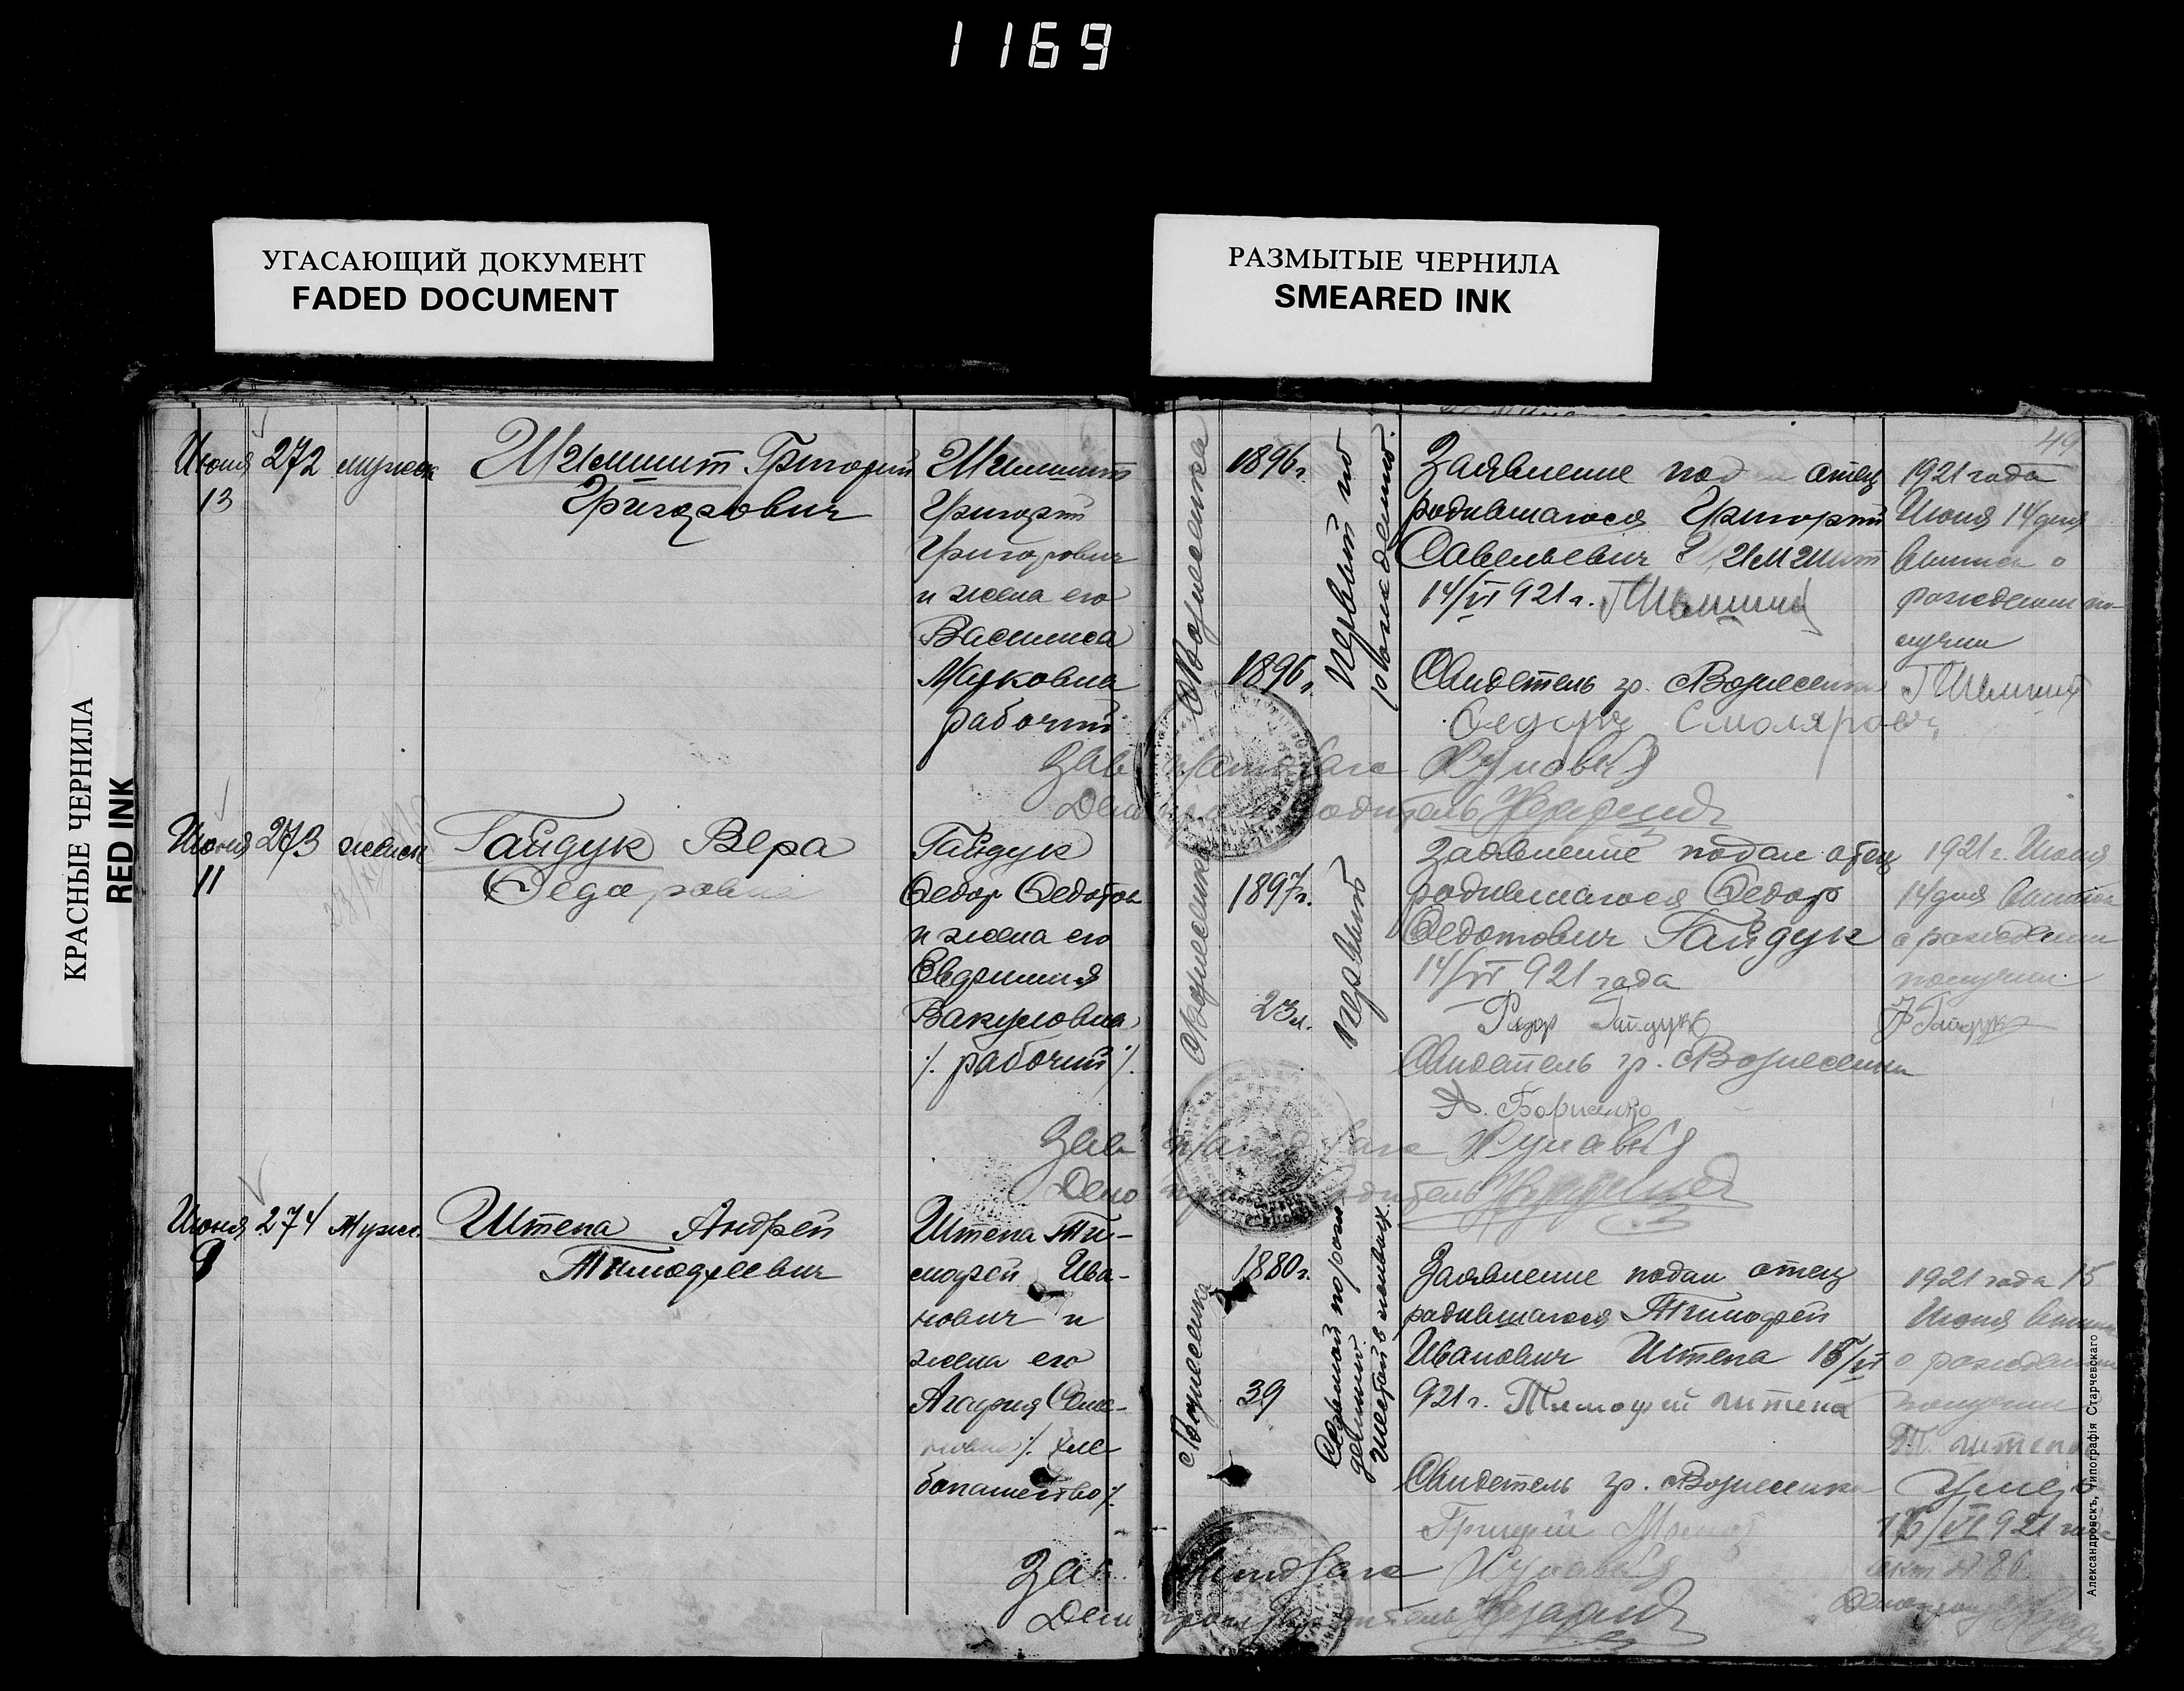 1169
УГАСАЮЩИЙ ДОКУМЕНТ
FADED DOCUMENT
РАЗМЫТЫЕ ЧЕРНИЛА
SMEARED INK
КРАСНЫЕ ЧЕРНИЛА
RED INK
49
Июня 272 мужск Григорий
13 Григорович
Григорий
Григорович
и жена его
Василиса
Марковна
рабочий
Вознесенка
1896г.
1896г.
Первый по
рождению.
Заявление отец
родившагося Григорий
Савельевич
14/VI 921 г.
Свидетель гр. Вознесенки
1921 года
Июня 14 дня
о
рождении по-
лучил
Зав
Июня 273 женск Гайдук Вера
11 Федоровна
Гайдук
Федор Федотов
и жена его
Вакуловна
/. рабочий /.
Вознесенка
1897г.
23л.
Первый
Заявление подал отец
родившагося Федор
Федотович Гайдук
14/VI 921 года
Гайдук
Свидетель гр. Вознесенки
Борисенко
1921 г. Июня
14 дня
о рождении
получил
Гайдук
Зав
Июня 274 Мужс. Штепа Андрей
Тимофеевич
Штепа Ти-
мофей Ива-
нович и
жена его
Агафия Семе-
новна /. хле
бопашество /.
Вознесенка
1880г.
39
Седьмой по рож
дению
шестой в живых
Заявление подал отец
родившагося Тимофей
Иванович Штепа 15/VI
921 г. Тимофей штепа
Свидетель гр. Вознесенки
Григорий
1921 года 15
Июня
о рождении
получил
Т. штепа
Умер
16/VI 921 года
акт № 86
Зав.
Александровскъ, типографія Старчевскаго